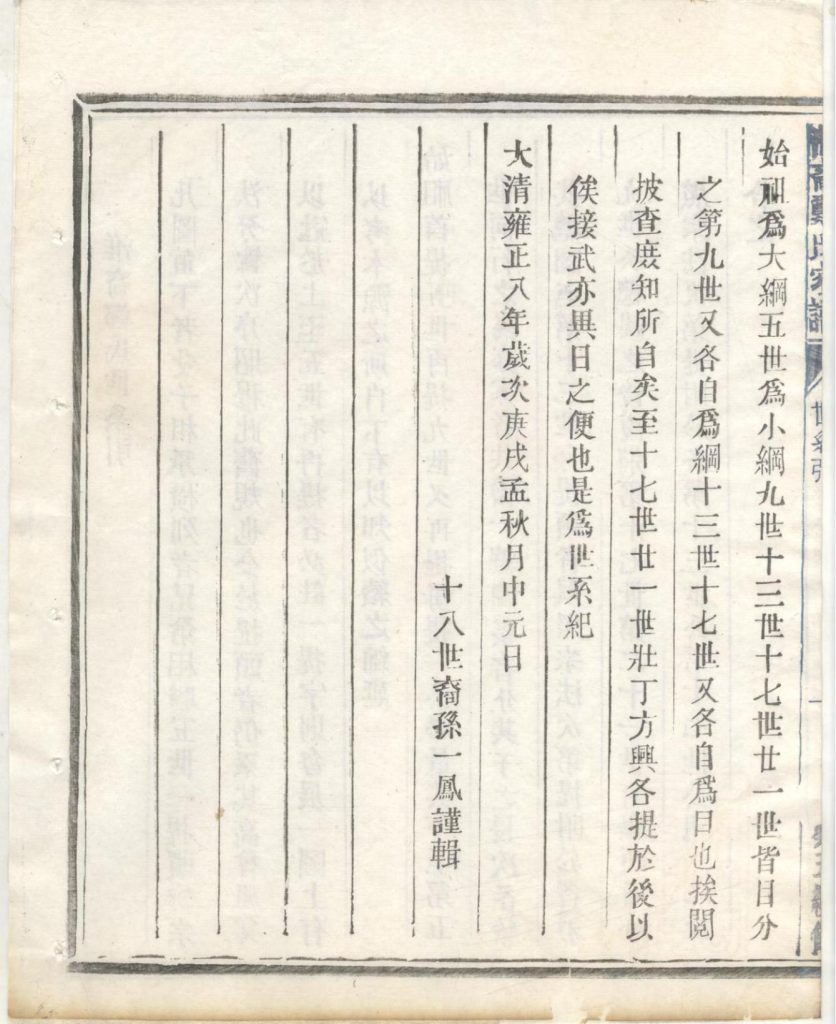 氏家譜
世系引
一
始祖爲大綱五世爲小綱九世十三世十七世廿一世皆目分
之第九世又各自爲綱十三世十七世又各自爲目也挨閱
披查庻知所自矣至十七世廿一世壯丁方興各提於後以
俟接武亦異日之便也是爲世系紀
大清雍正八年歲次庚戌孟秋月中元日
十八世裔孫一鳳謹輯